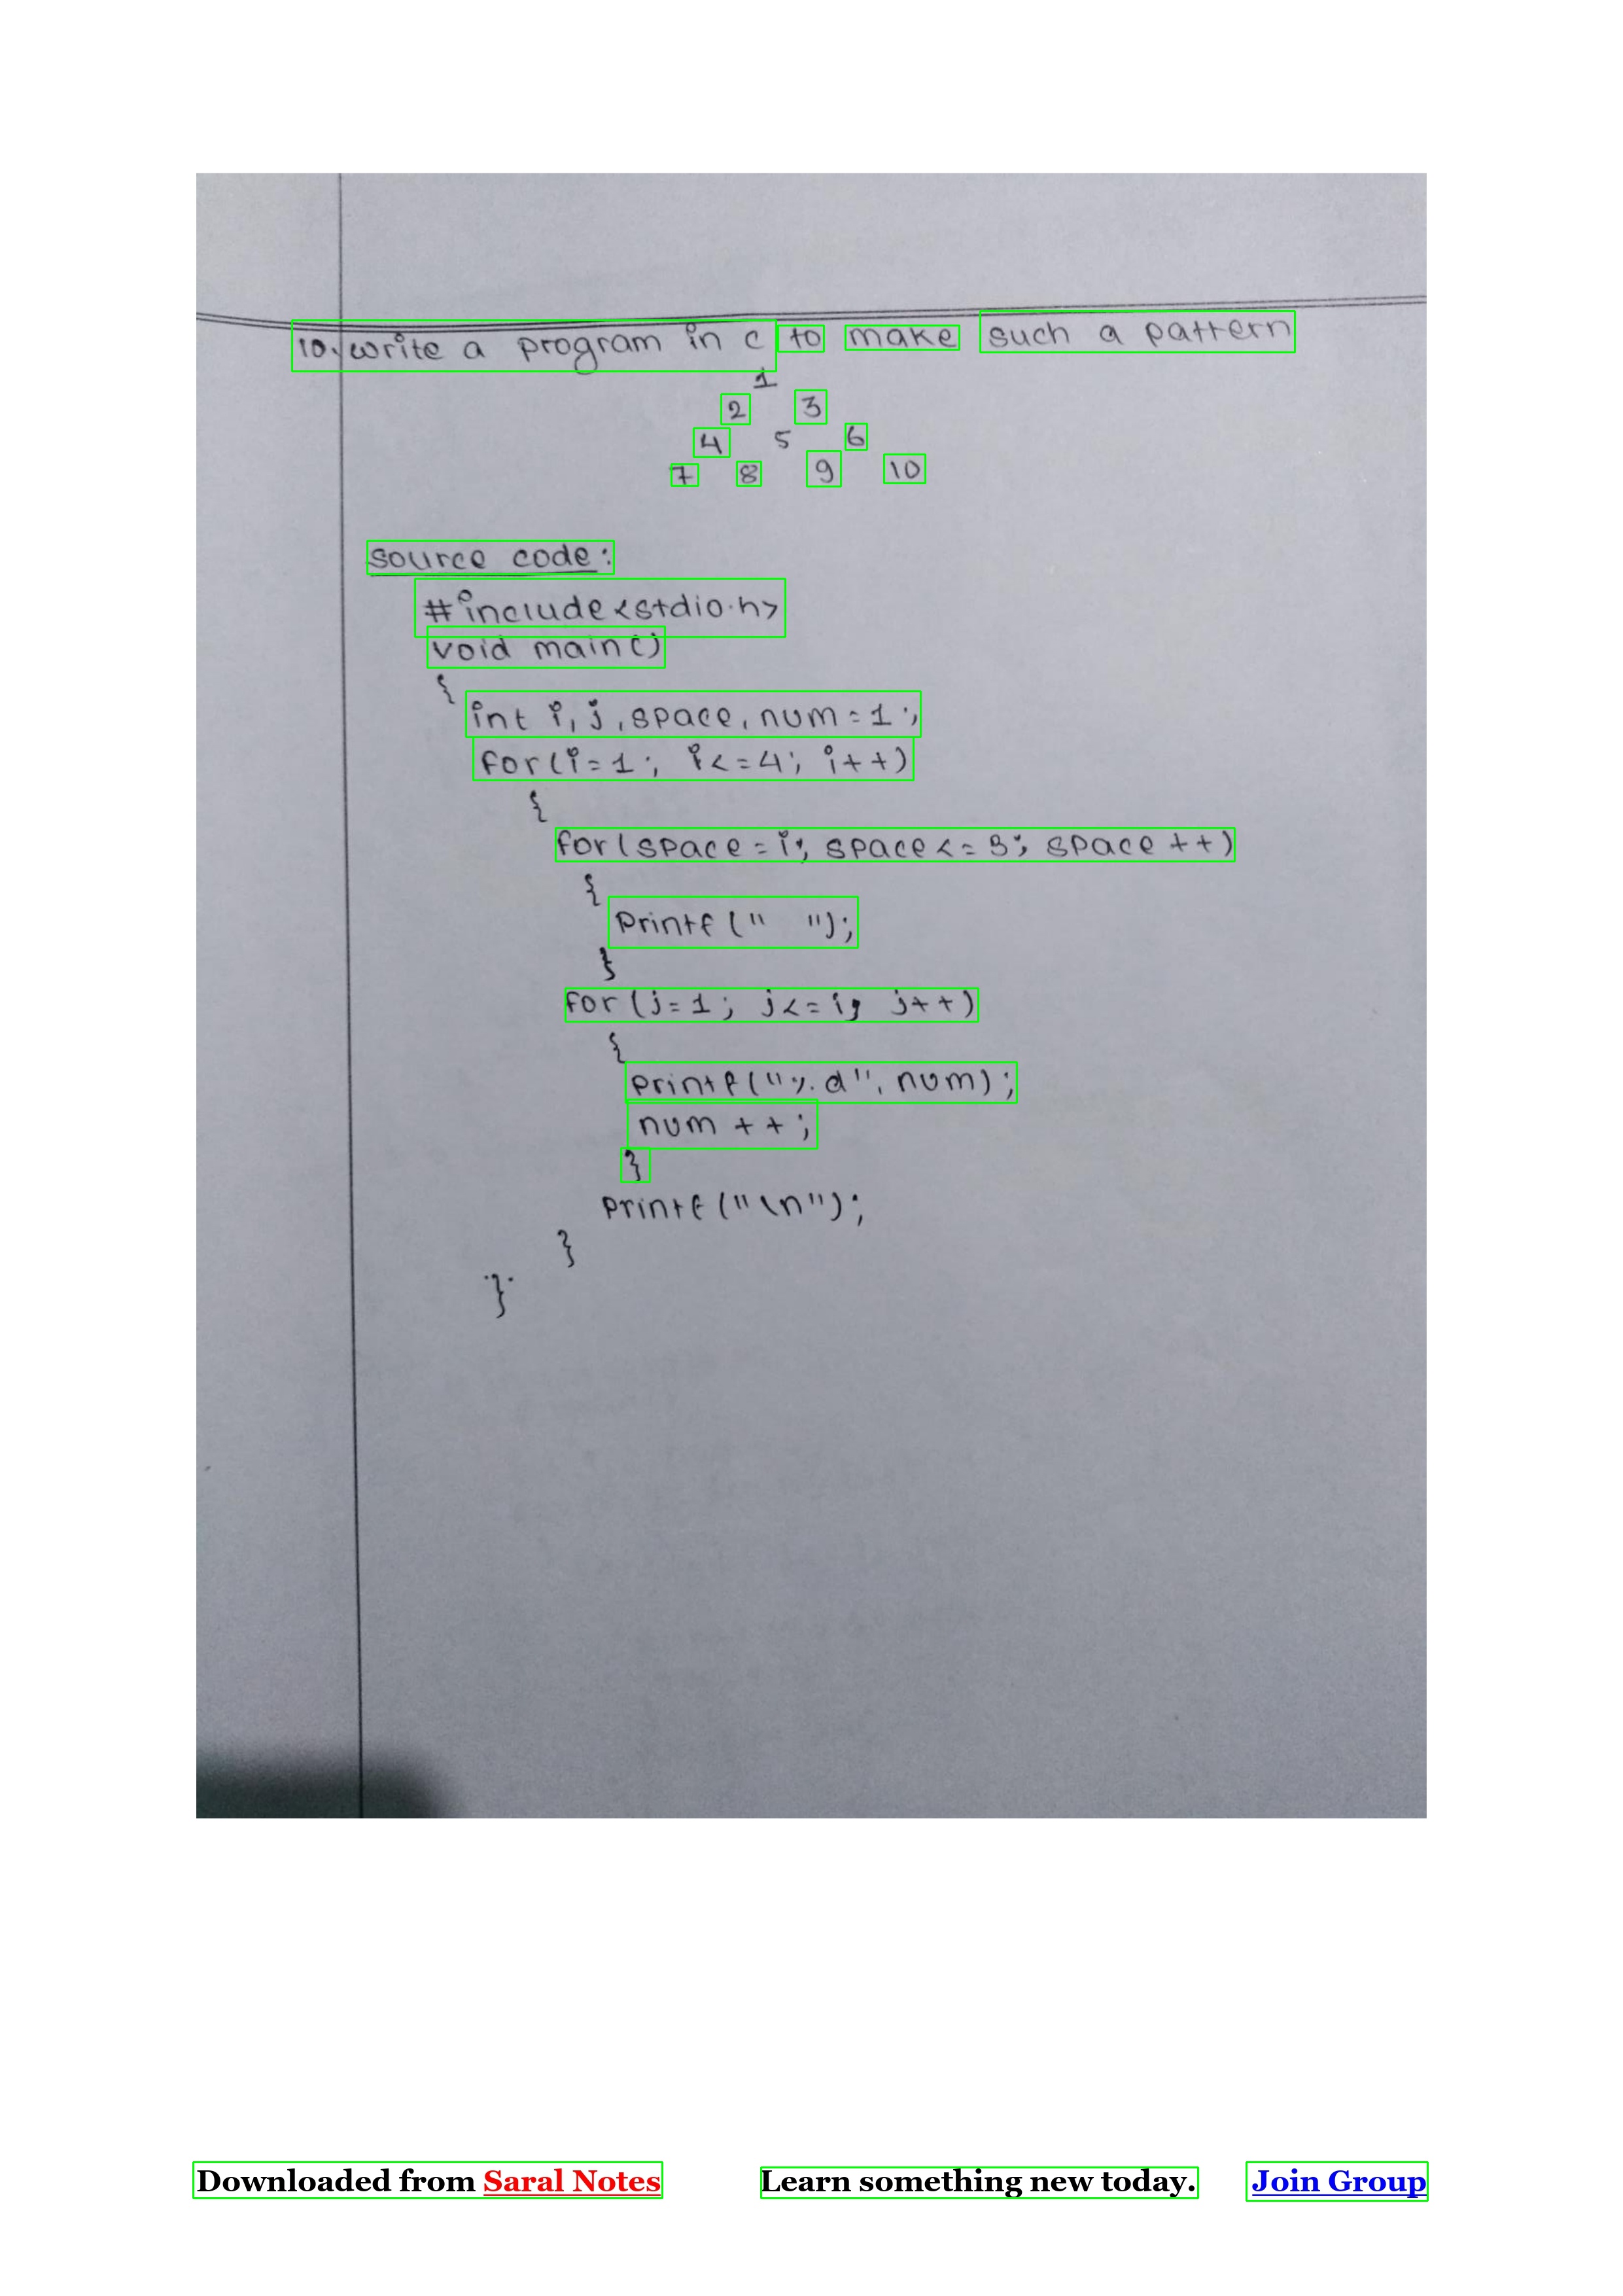 10. write a program in c to make such a pattern
1
2 3
4 5 6
7 8 9 10
source code:
#include<stdio.h>
void main()
{
int i, j, space, num = 1;
for(i=1; i<=4; i++)
{
for(space = i; space <= 3; space ++)
{
printf("  ");
}
for (j=1; j<=i; j++)
{
printf("%d", num);
num ++;
}
printf("\n");
}
}
Downloaded from Saral Notes Learn something new today. Join Group